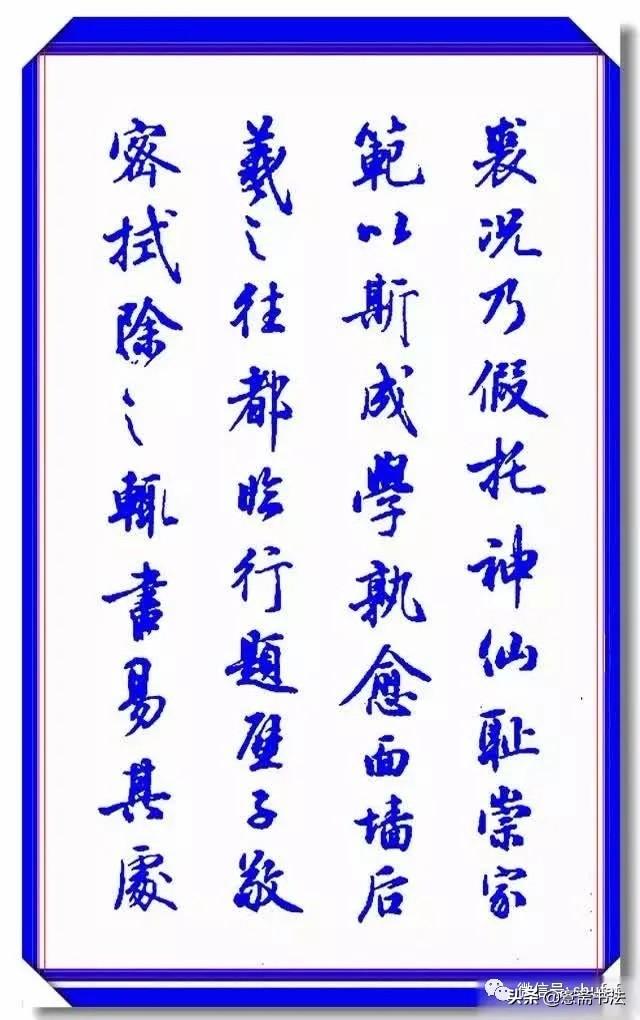 裘况乃假托神仙耻崇家
範以斯成學孰愈面墙后
羲之往都临行題壁子敬
密拭除之輒書易其處
微信号:
头条 书法